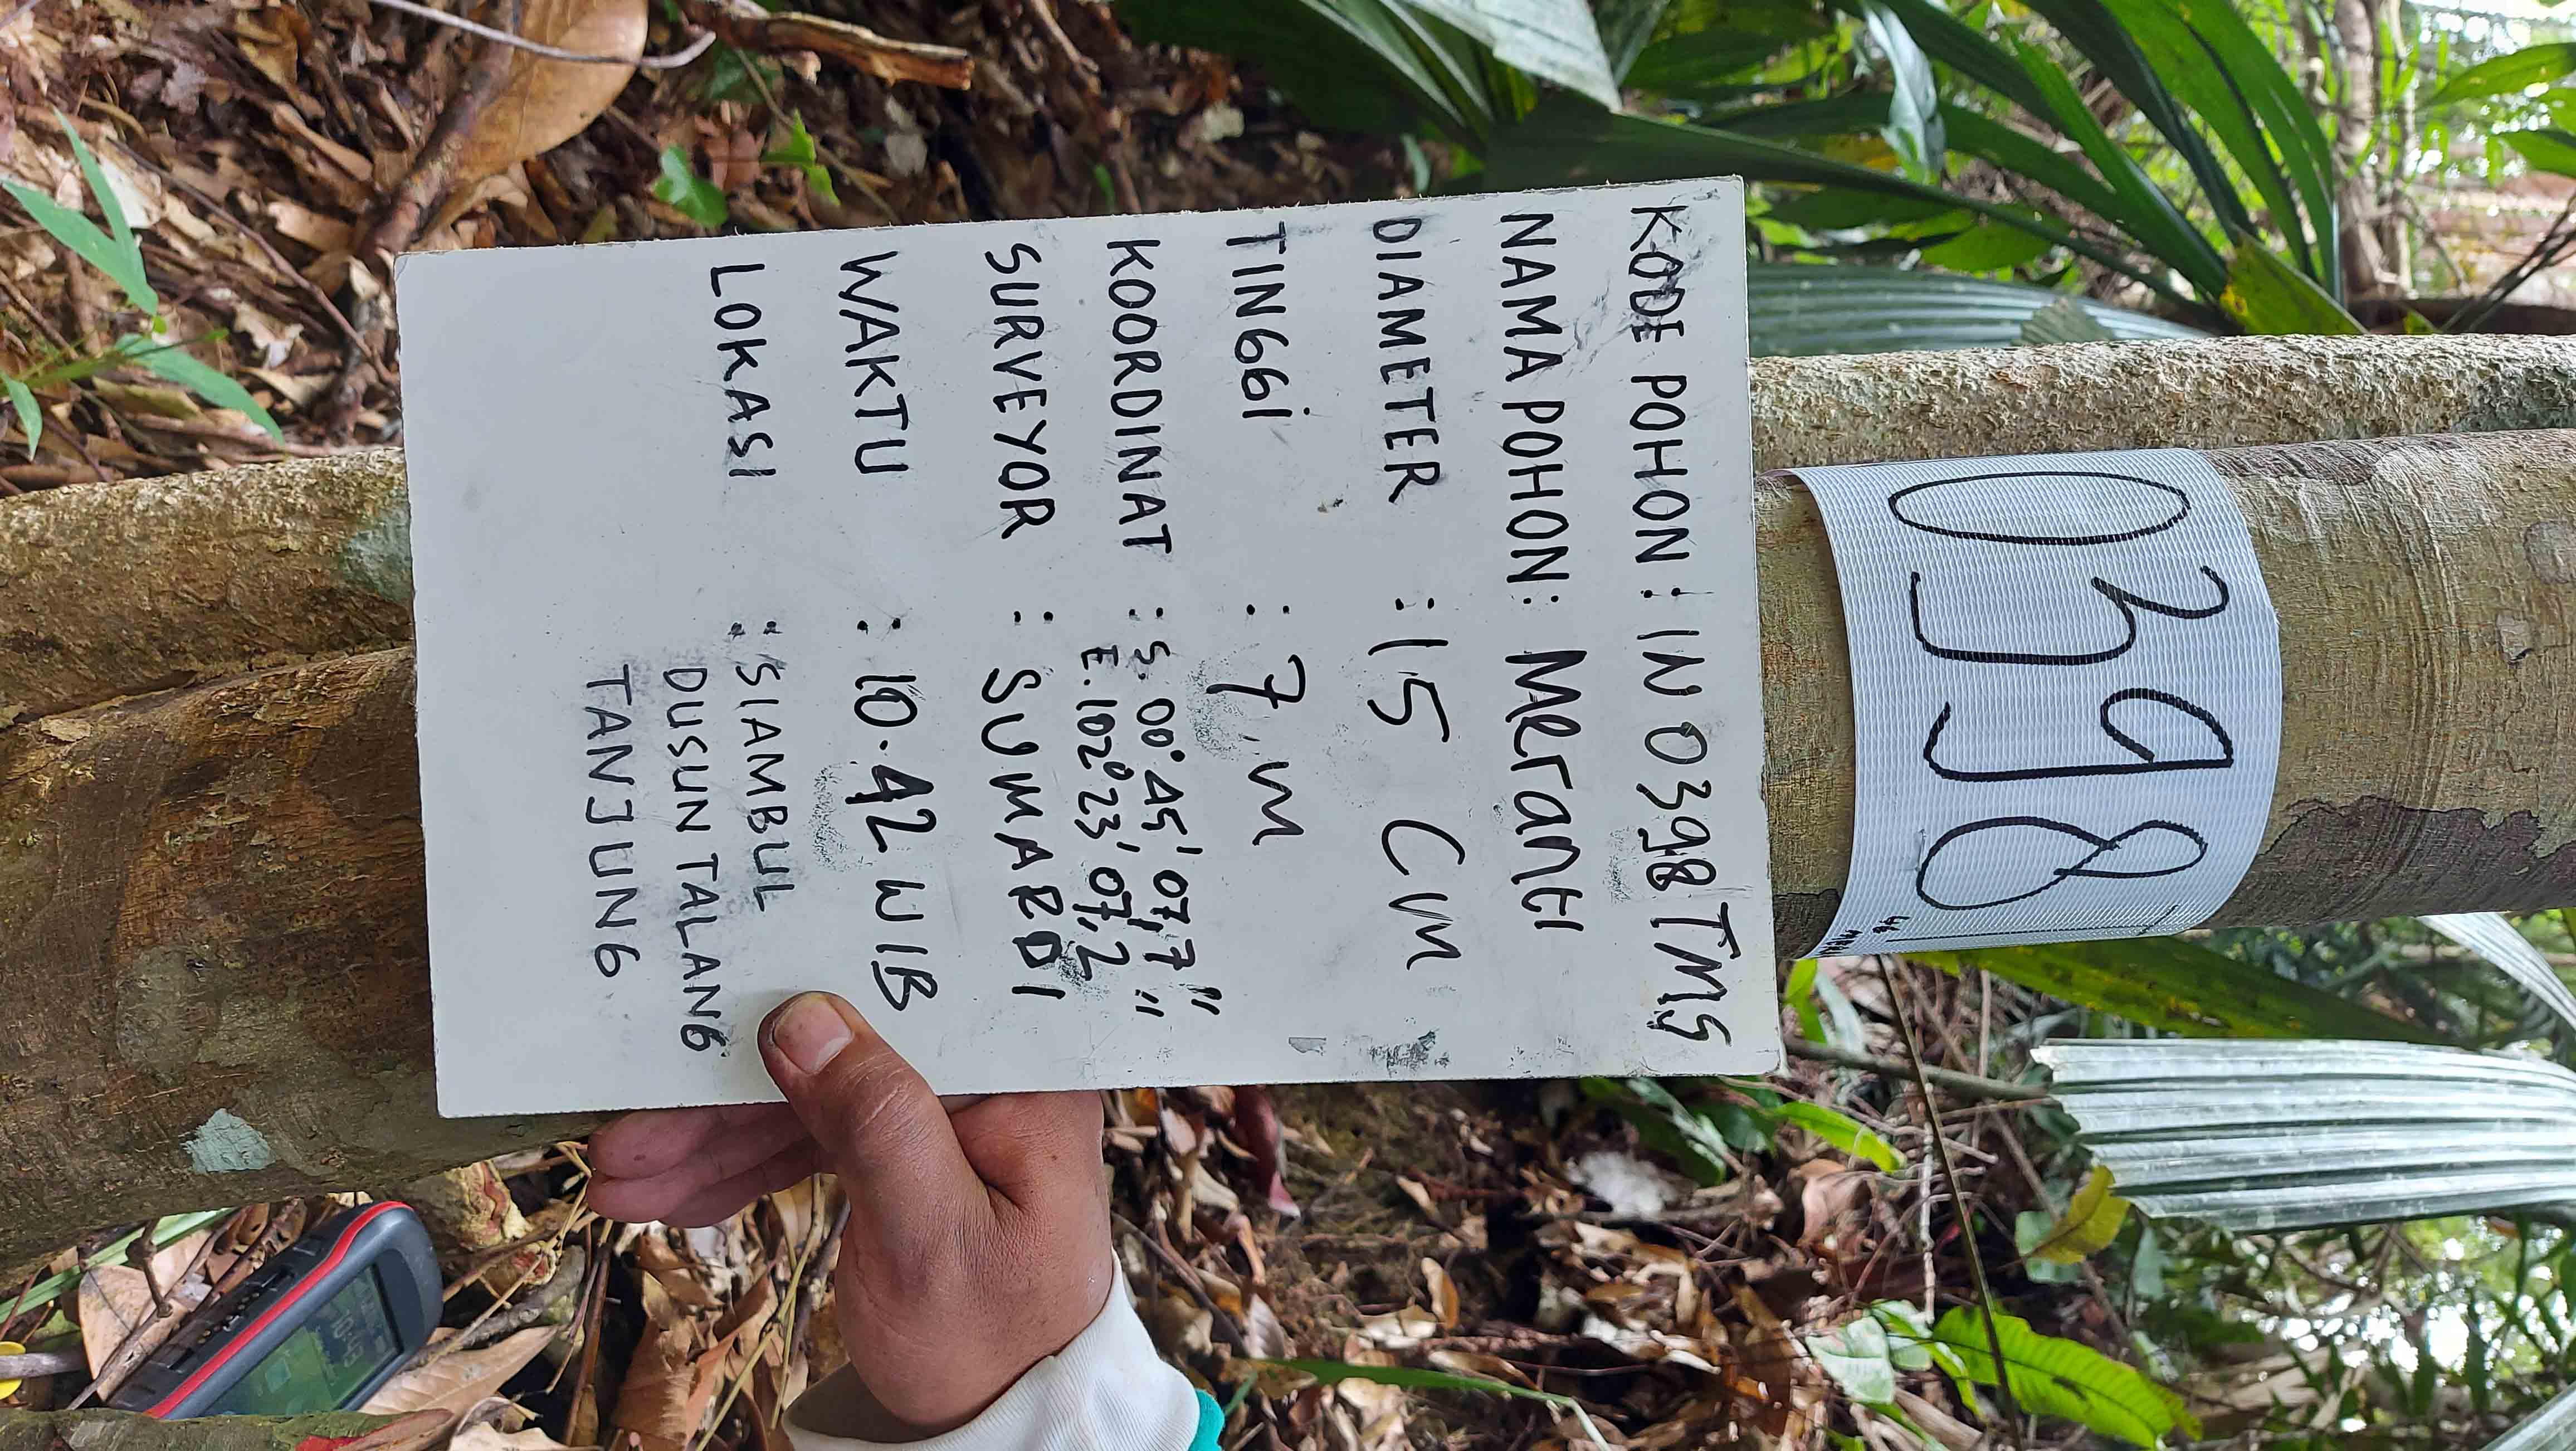 KODE POHON : IN 0398 TMS
NAMA POHON : Meranti
DIAMETER : 15 CM
TINGGi : 7 M
KOORDINAT : S. 00° 45' 07,7"
E. 102° 23' 07,2"
SURVEYOR : SUMARDI
WAKTU : 10.42 WIB
LOKASI : SIAMBUL
DUSUN TALANG
TANJUNG
0398